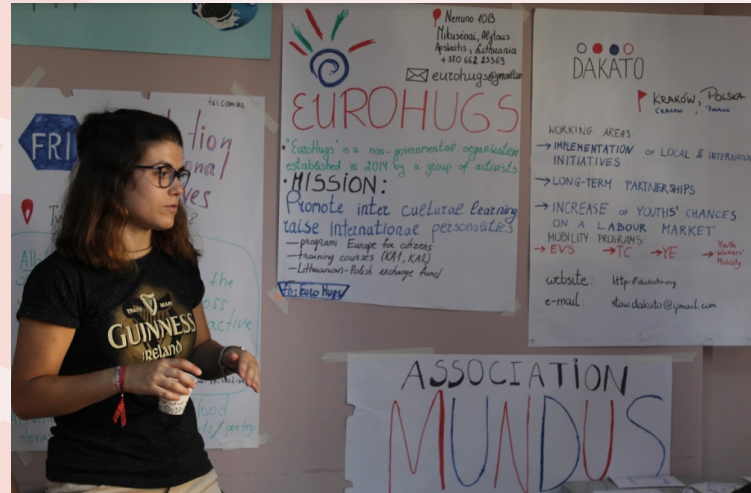 FRI
All
the
active
food
poetry
TRADE MARK
GUINNESS
IRELAND
Nemuno 10B
Mikusėnai, Alytaus
Apskritis, Lithuania
+370 662 23569
eurohugs@gmail.com
EUROHUGS
• "EuroHugs" is a non-governmental organisation
established in 2014 by a group of activists
• MISSION:
Promote inter cultural learning
raise international personalities
— program Europe for citizens
— training courses (KA1, KA2)
— Lithuanian-Polish exchange fund
fb: Euro Hugs
DAKATO
KRAKÓW, POLSKA
CRACOW, POLAND
WORKING AREAS:
→ IMPLEMENTATION OF LOCAL & INTERNATION
INITIATIVES
→ LONG-TERM PARTNERSHIPS
→ INCREASE OF YOUTHS' CHANCES
ON A LABOUR MARKET
MOBILITY PROGRAMS:
→ EVS → TC → YE → Youth
Workers'
Mobility
website: http://dakato.org
e-mail: stow.dakato@gmail.com
ASSOCIATION
MUNDUS